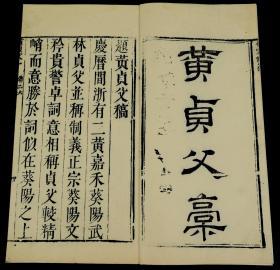 黄貞父稾
題黃貞父稿
慶曆間浙有二黃嘉禾葵陽武
林貞父並稱制義正宗葵陽文
矜貴警卓詞意相稱貞父較精
峭而意勝於詞似在葵陽之上